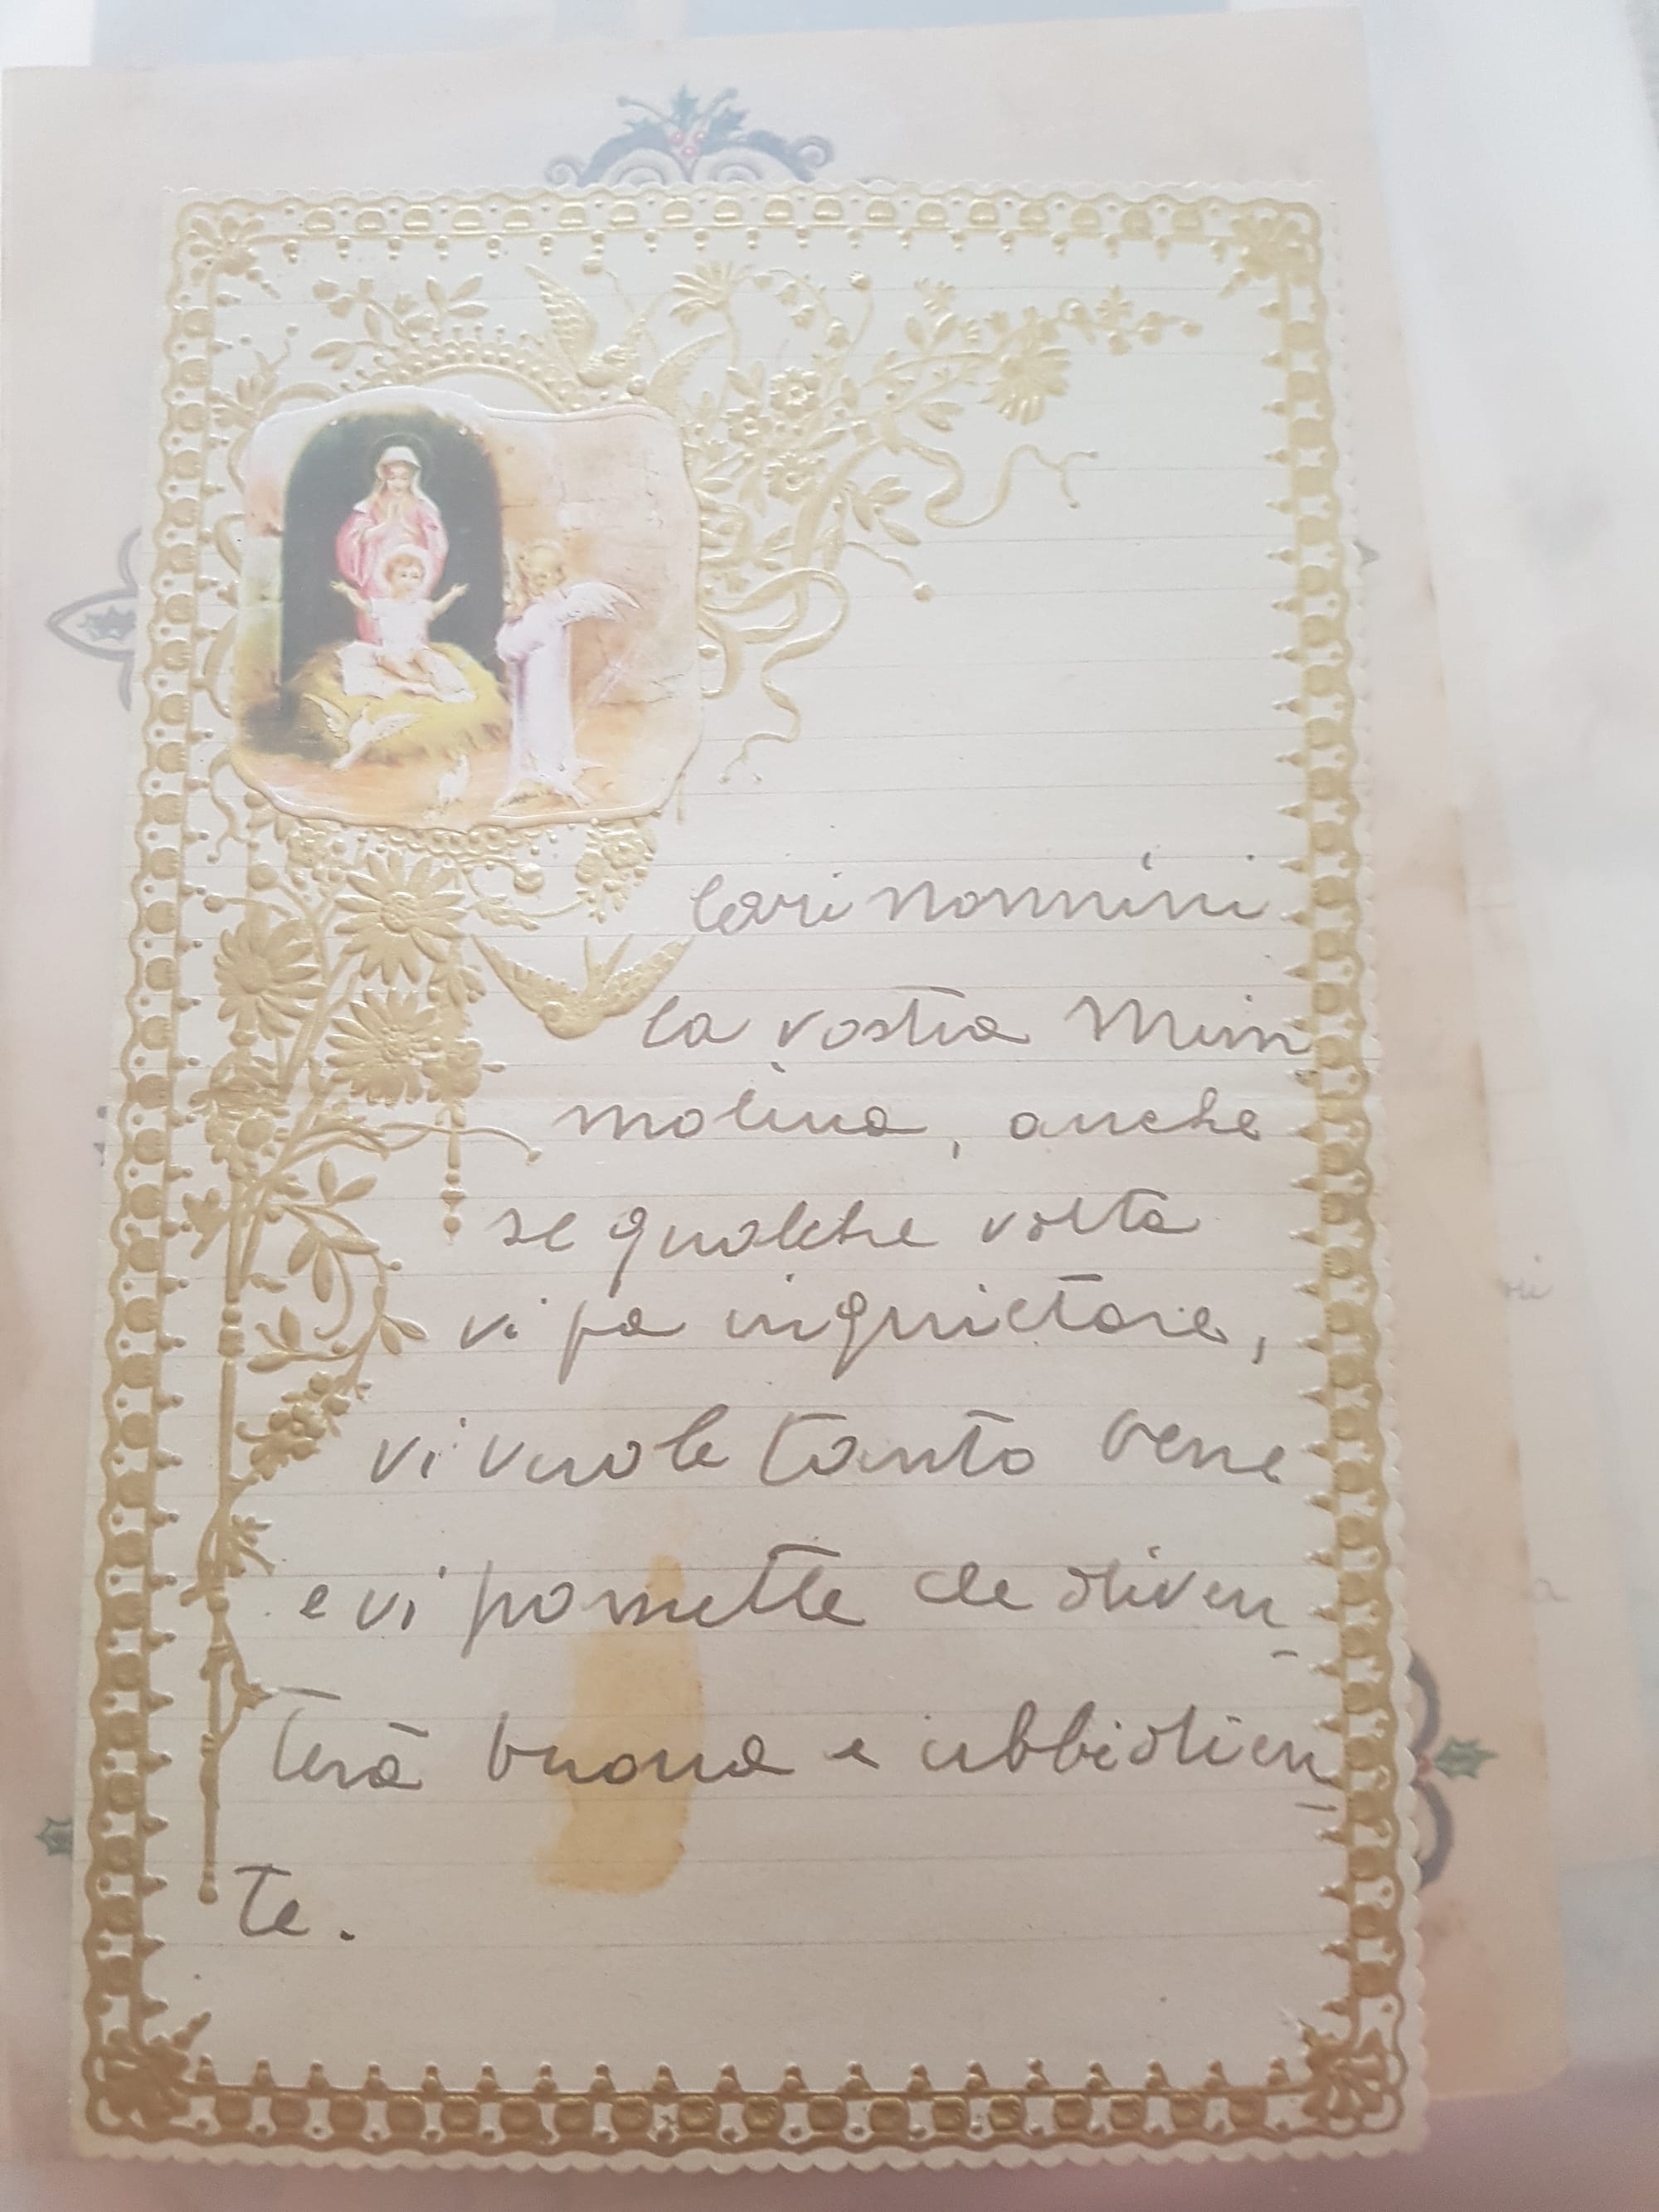 Cari nonnini
la vostra Mim
molina, anche
se qualche volta
vi fa inquietare,
vi vuole tanto bene
e vi promette che diven
terà buona e ubbidien
te.